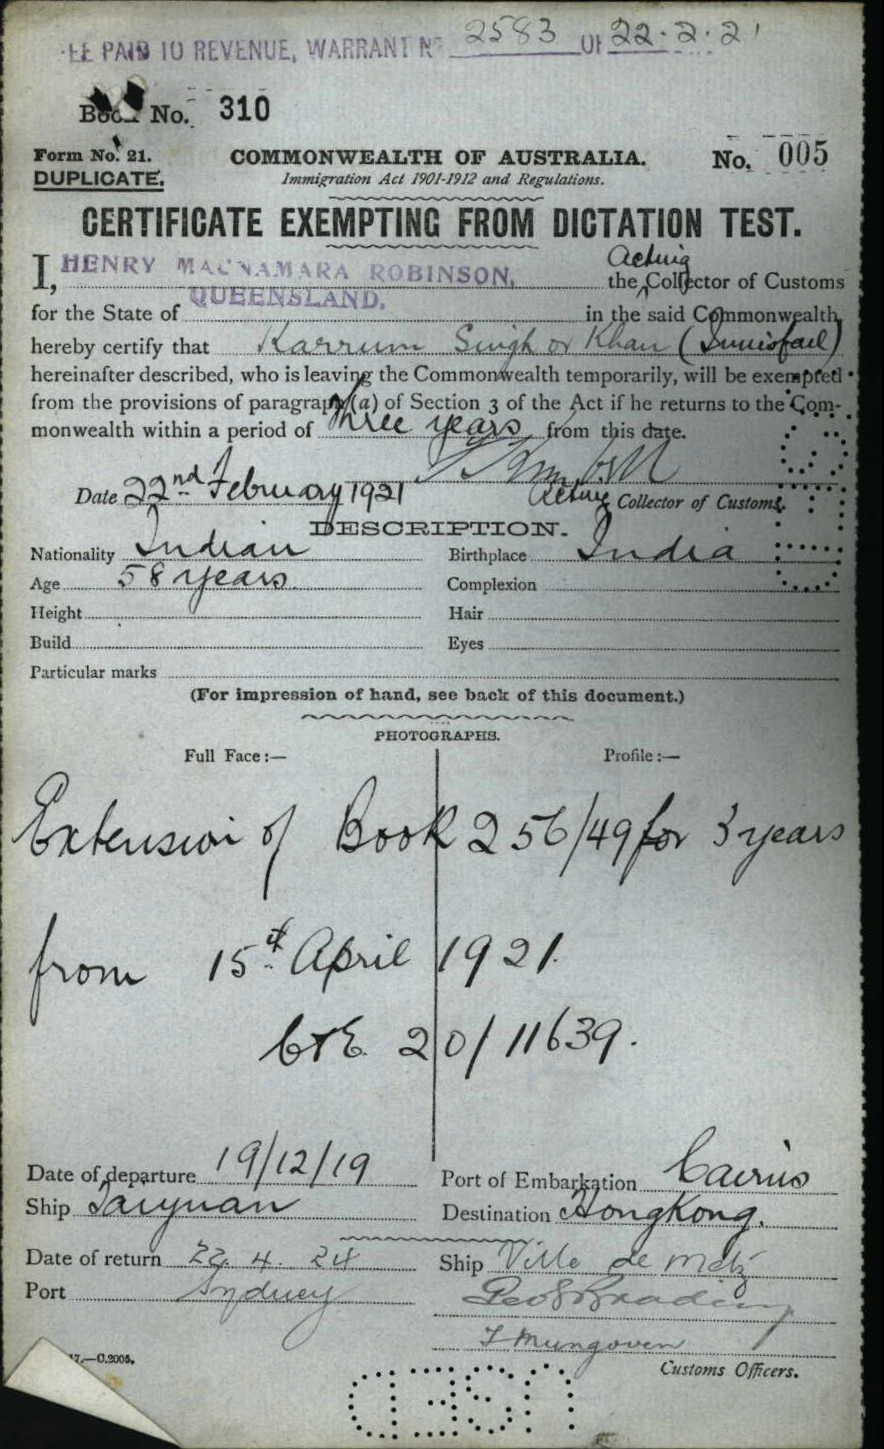 FEE PAID TO REVENUE, WARRANT No 2583 OF 22.2.21
Book No. 310
Form No. 21.
DUPLICATE.
COMMONWEALTH OF AUSTRALIA.
No. 005
Immigration Act 1901-1912 and Regulations.
CERTIFICATE EXEMPTING FROM DICTATION TEST.
I, HENRY MACNAMARA ROBINSON, the Acting Collector of Customs
for the State of QUEENSLAND. in the said Commonwealth
hereby certify that Karrum Singh or Khan (Innisfail)
hereinafter described, who is leaving the Commonwealth temporarily, will be exempted
from the provisions of paragraph (a) of Section 3 of the Act if he returns to the Com-
monwealth within a period of three years from this date.
Date 22nd February 1921
Acting Collector of Customs.
DESCRIPTION.
Nationality Indian Birthplace India
Age 58 years Complexion
Height Hair
Build Eyes
Particular marks
(For impression of hand, see back of this document.)
PHOTOGRAPHS.
Full Face :— Profile :—
Extension of Book 256/49 for 3 years
from 15th April 1921.
C&E 20/11639.
Date of departure 19/12/19 Port of Embarkation Cairns
Ship Taiyuan Destination HongKong.
Date of return 22.4.24 Ship Ville de Metz
Port Sydney
Customs Officers.
17.—C.2005.